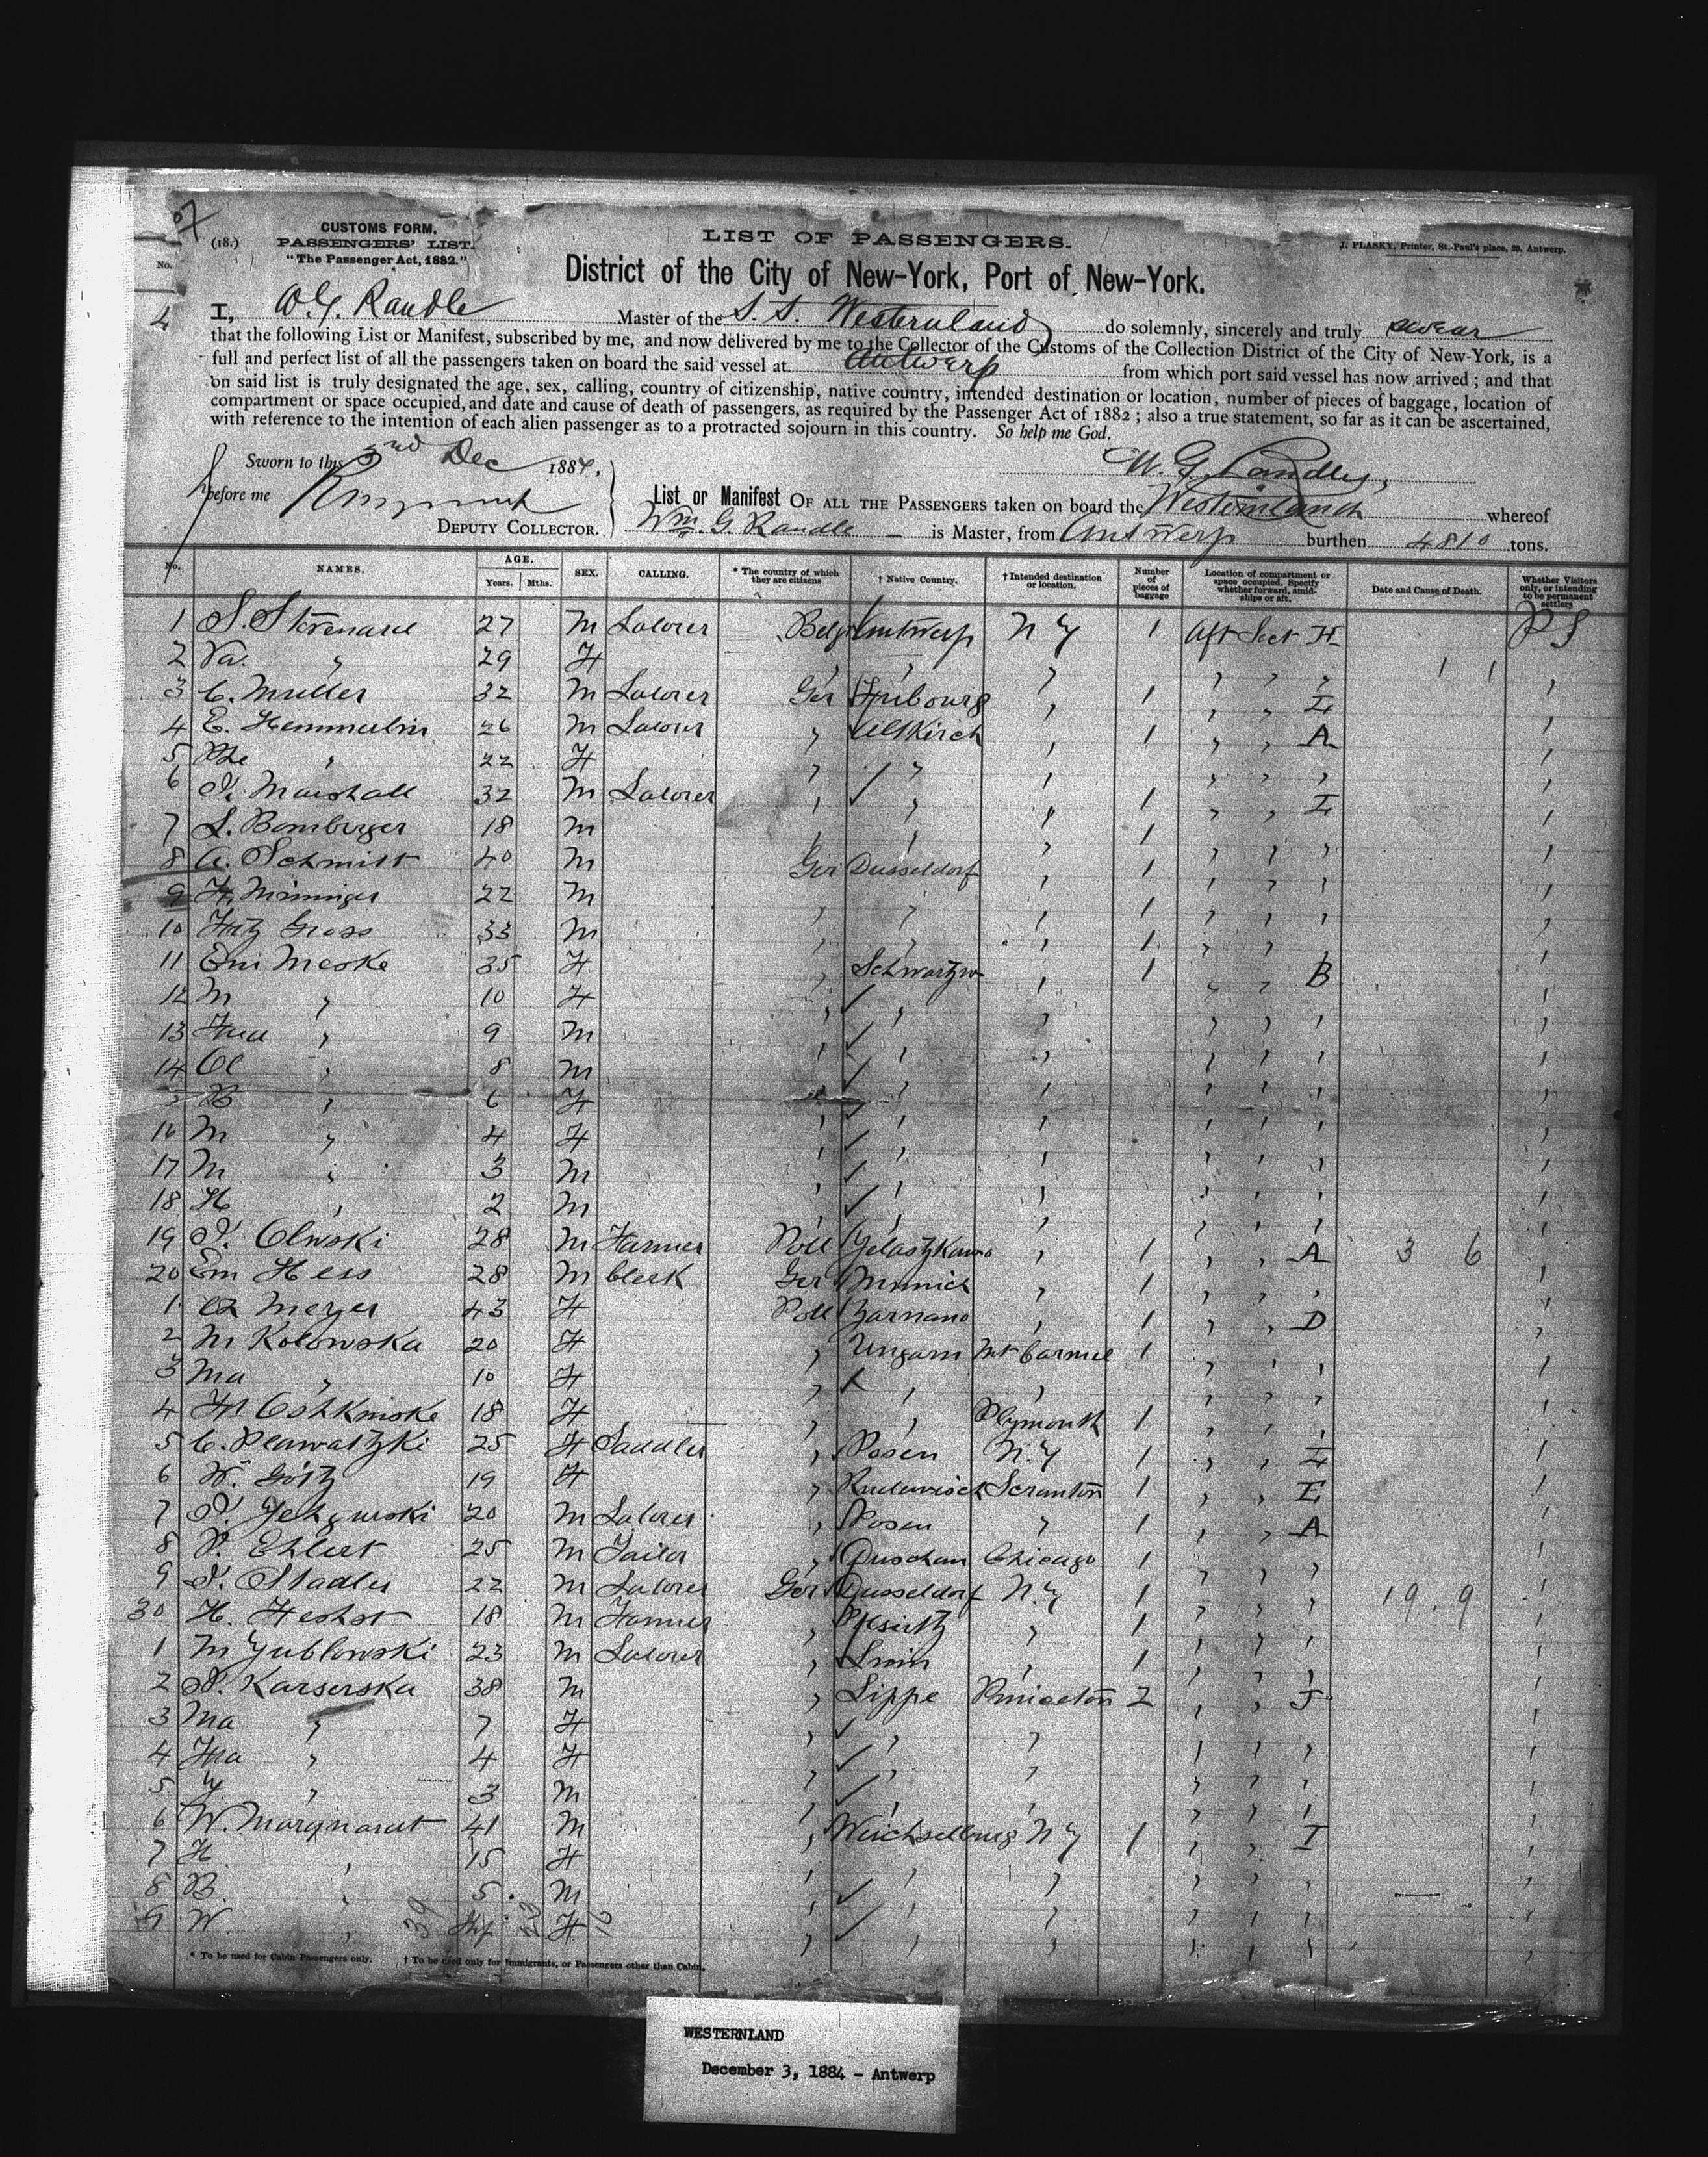 CUSTOMS FORM.
(18.) PASSENGERS' LIST.
"The Passenger Act, 1882."
LIST OF PASSENGERS.
J. PLASKY, Printer, St.-Paul's place, 29, Antwerp.
District of the City of New-York, Port of New-York.
No.
4
I, W. G. Randle Master of the S. S. Westernland do solemnly, sincerely and truly swear
that the following List or Manifest, subscribed by me, and now delivered by me to the Collector of the Customs of the Collection District of the City of New-York, is a
full and perfect list of all the passengers taken on board the said vessel at Antwerp from which port said vessel has now arrived ; and that
on said list is truly designated the age, sex, calling, country of citizenship, native country, intended destination or location, number of pieces of baggage, location of
compartment or space occupied, and date and cause of death of passengers, as required by the Passenger Act of 1882 ; also a true statement, so far as it can be ascertained,
with reference to the intention of each alien passenger as to a protracted sojourn in this country. So help me God.
Sworn to this 3rd Dec 1884,
W. G. Randle,
before me
DEPUTY COLLECTOR.
List or Manifest OF ALL THE PASSENGERS taken on board the Westernland whereof
Wm. G. Randle is Master, from Antwerp burthen 4810 tons.
No. NAMES. AGE. Years. Mths. SEX. CALLING. * The country of which they are citizens † Native Country. † Intended destination or location. Number of pieces of baggage Location of compartment or space occupied. Specify whether forward, amidships or aft. Date and Cause of Death. Whether Visitors only, or intending to be permanent settlers
1 S. Stevenard 27 M Laborer Belg Antwerp N Y 1 Aft Sect H P S
2 Va. " 29 F " " " " " " 1 1 "
3 C. Muller 32 M Laborer Ger Fribourg " 1 " " I "
4 E. Hemmerlin 26 M Laborer " Altkirch " 1 " " A "
5 " 22 F " " " " " " "
6 Marshall 32 M Laborer " " " 1 " " I "
7 L. Bomberger 18 M " " " 1 " " " "
8 A. Schmitt 40 M Ger Dusseldorf " 1 " " " "
9 Minninger 22 M " " " 1 " " " "
10 Fritz Grass 33 M " " " 1 " " " "
11 Em Meske 35 F " Schwartzw " 1 " " B "
12 M " 10 F " " " " " " "
13 " 9 M " " " " " " "
14 " 8 M " " " " " " "
5 B " 6 F " " " " " " "
16 M " 4 F " " " " " " "
17 M " 3 M " " " " " " "
18 H " 2 M " " " " " " "
19 Olwski 28 M Farmer Poll " 1 " " A 3 6 "
20 Em Hess 28 M Clerk Ger Munich " 1 " " " "
1 Meyer 43 F Poll Zarnano " 1 " " D "
2 M Kolowska 20 F " Ungarn Mt Carmel 1 " " " "
3 Ma " 10 F " " " " " " "
4 18 F " " Plymouth 1 " " " "
5 C. Plawatzki 25 F Saddler " Posen N. Y 1 " " I "
6 W. Götz 19 F " Scranton 1 " " E "
7 20 M Laborer " Posen " 1 " " A "
8 Ehlert 25 M Tailor " Chicago 1 " " " "
9 Stadler 22 M Laborer Ger Dusseldorf N. Y 1 " " " 19. 9 "
30 H. 18 M Farmer " " 1 " " " "
1 M Yublowski 23 M Laborer " " 1 " " " "
2 Karserska 38 M " Lippe Princeton 2 " " J "
3 Ma " 7 F " " " " " " "
4 Fra " 4 F " " " " " " "
5 Y " 3 M " " " " " " "
6 W. Marquardt 41 M " N Y 1 " " I "
7 H. " 15 F " " " " " " "
8 B. " 5 M " " " " " " "
9 W " 39 23 F 16 " " " " " " "
* To be used for Cabin Passengers only. † To be used only for Immigrants, or Passengers other than Cabin.
WESTERNLAND
December 3, 1884 - Antwerp